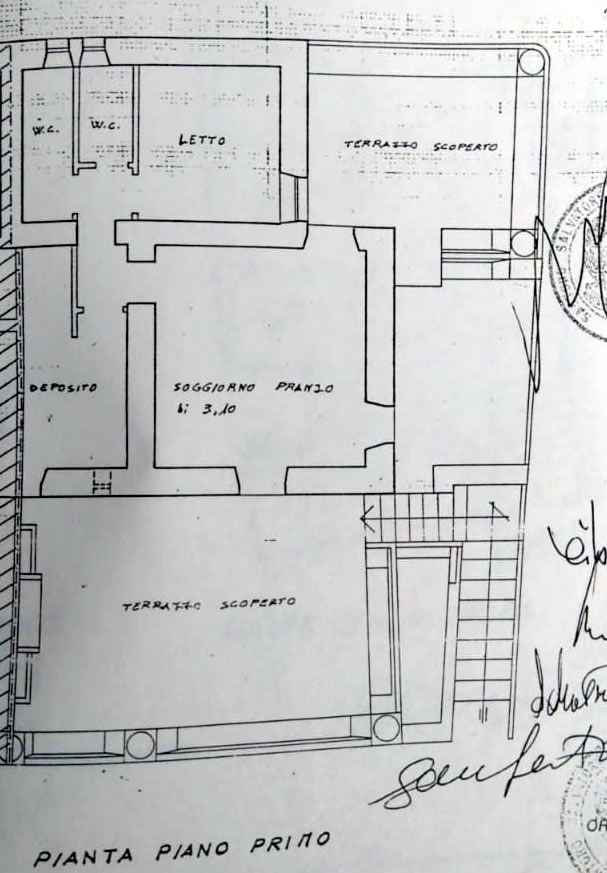 W.C.
W.C.
LETTO
TERRAZZO SCOPERTO
DEPOSITO
SOGGIORNO PRANZO
hi 3,10
TERRAZZO SCOPERTO
PIANTA PIANO PRIMO